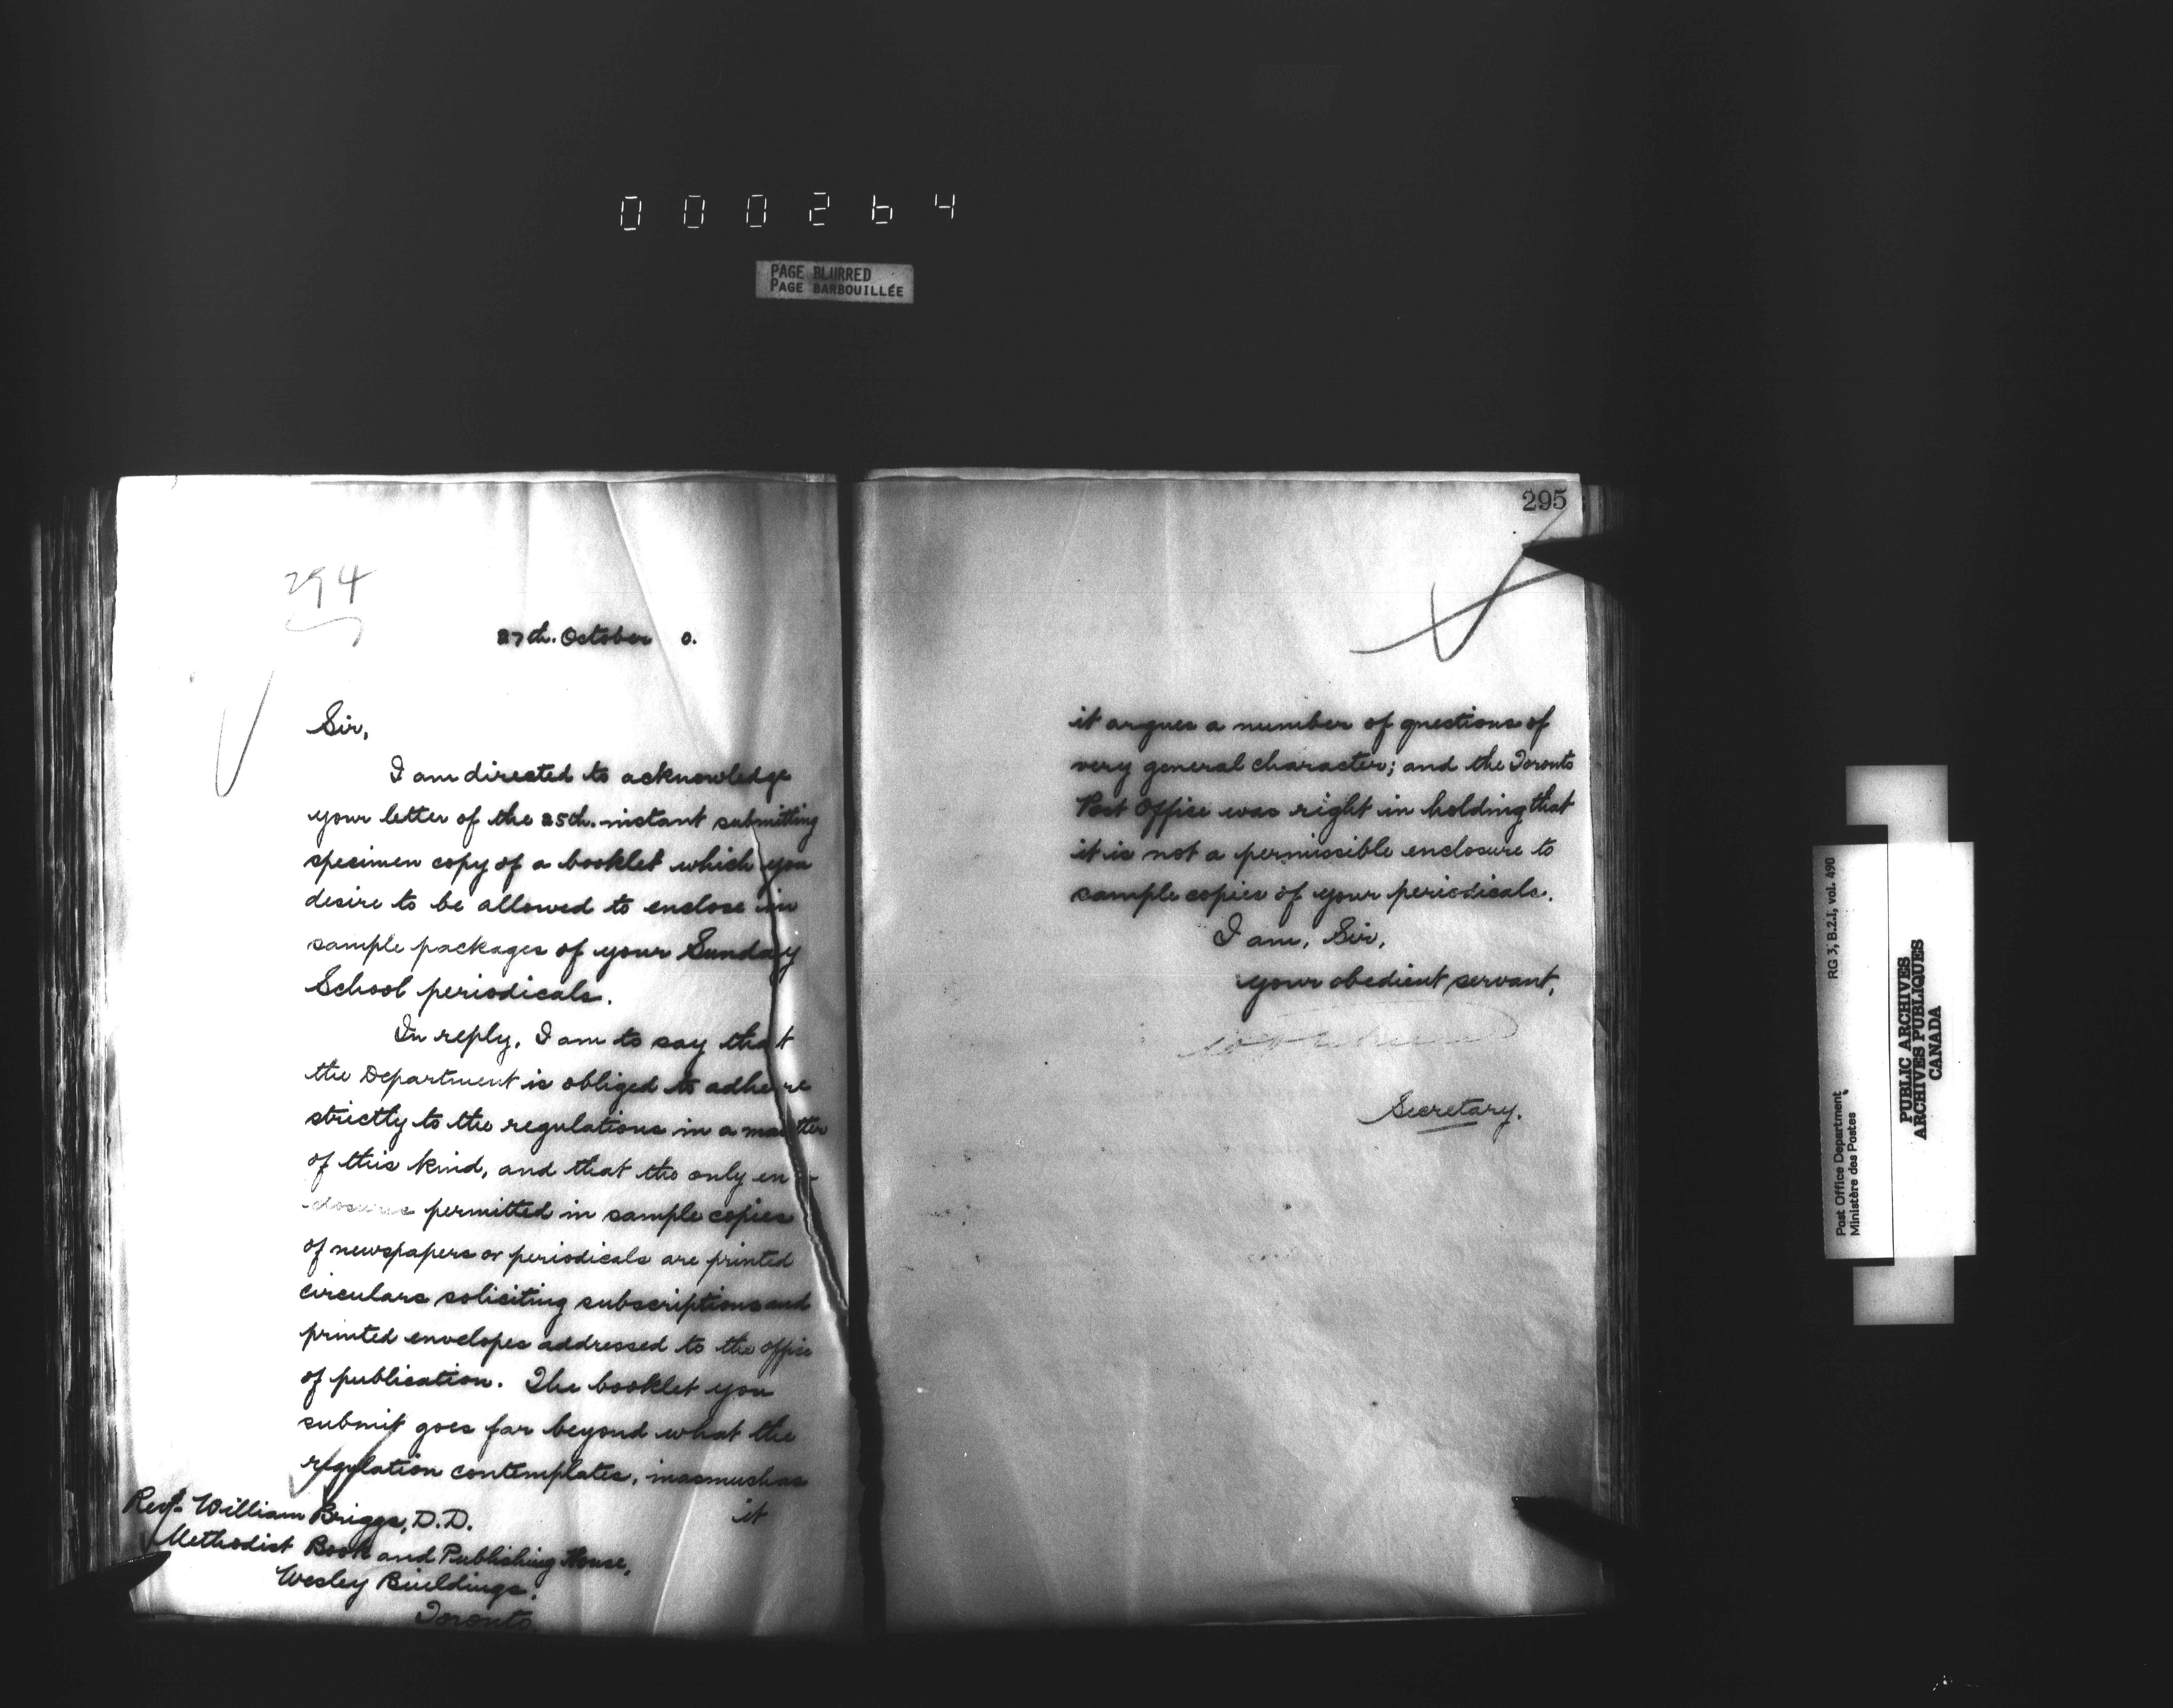 000264
PAGE BLURRED
PAGE BARBOUILLÉE
294
27th. October 0.
Sir,
I am directed to acknowledge
your letter of the 25th. instant submitting
specimen copy of a booklet which you
desire to be allowed to enclose in
sample packages of your Sunday
School periodicals.
In reply, I am to say that
the Department is obliged to adhere
strictly to the regulations in a matter
of this kind, and that the only en-
closures permitted in sample copies
of newspapers or periodicals are printed
circulars soliciting subscriptions and
printed envelopes addressed to the office
of publication. The booklet you
submit goes far beyond what the
regulation contemplates, inasmuch as
it
Revd. William Briggs, D.D.
Methodist Book and Publishing House,
Wesley Buildings,
Toronto.
295
it argues a number of questions of
very general character; and the Toronto
Post Office was right in holding that
it is not a permissible enclosure to
sample copies of your periodicals.
I am, Sir,
your obedient servant,
Secretary.
RG 3, B.2.I, vol. 490
Post Office Department
Ministère des Postes
PUBLIC ARCHIVES
ARCHIVES PUBLIQUES
CANADA